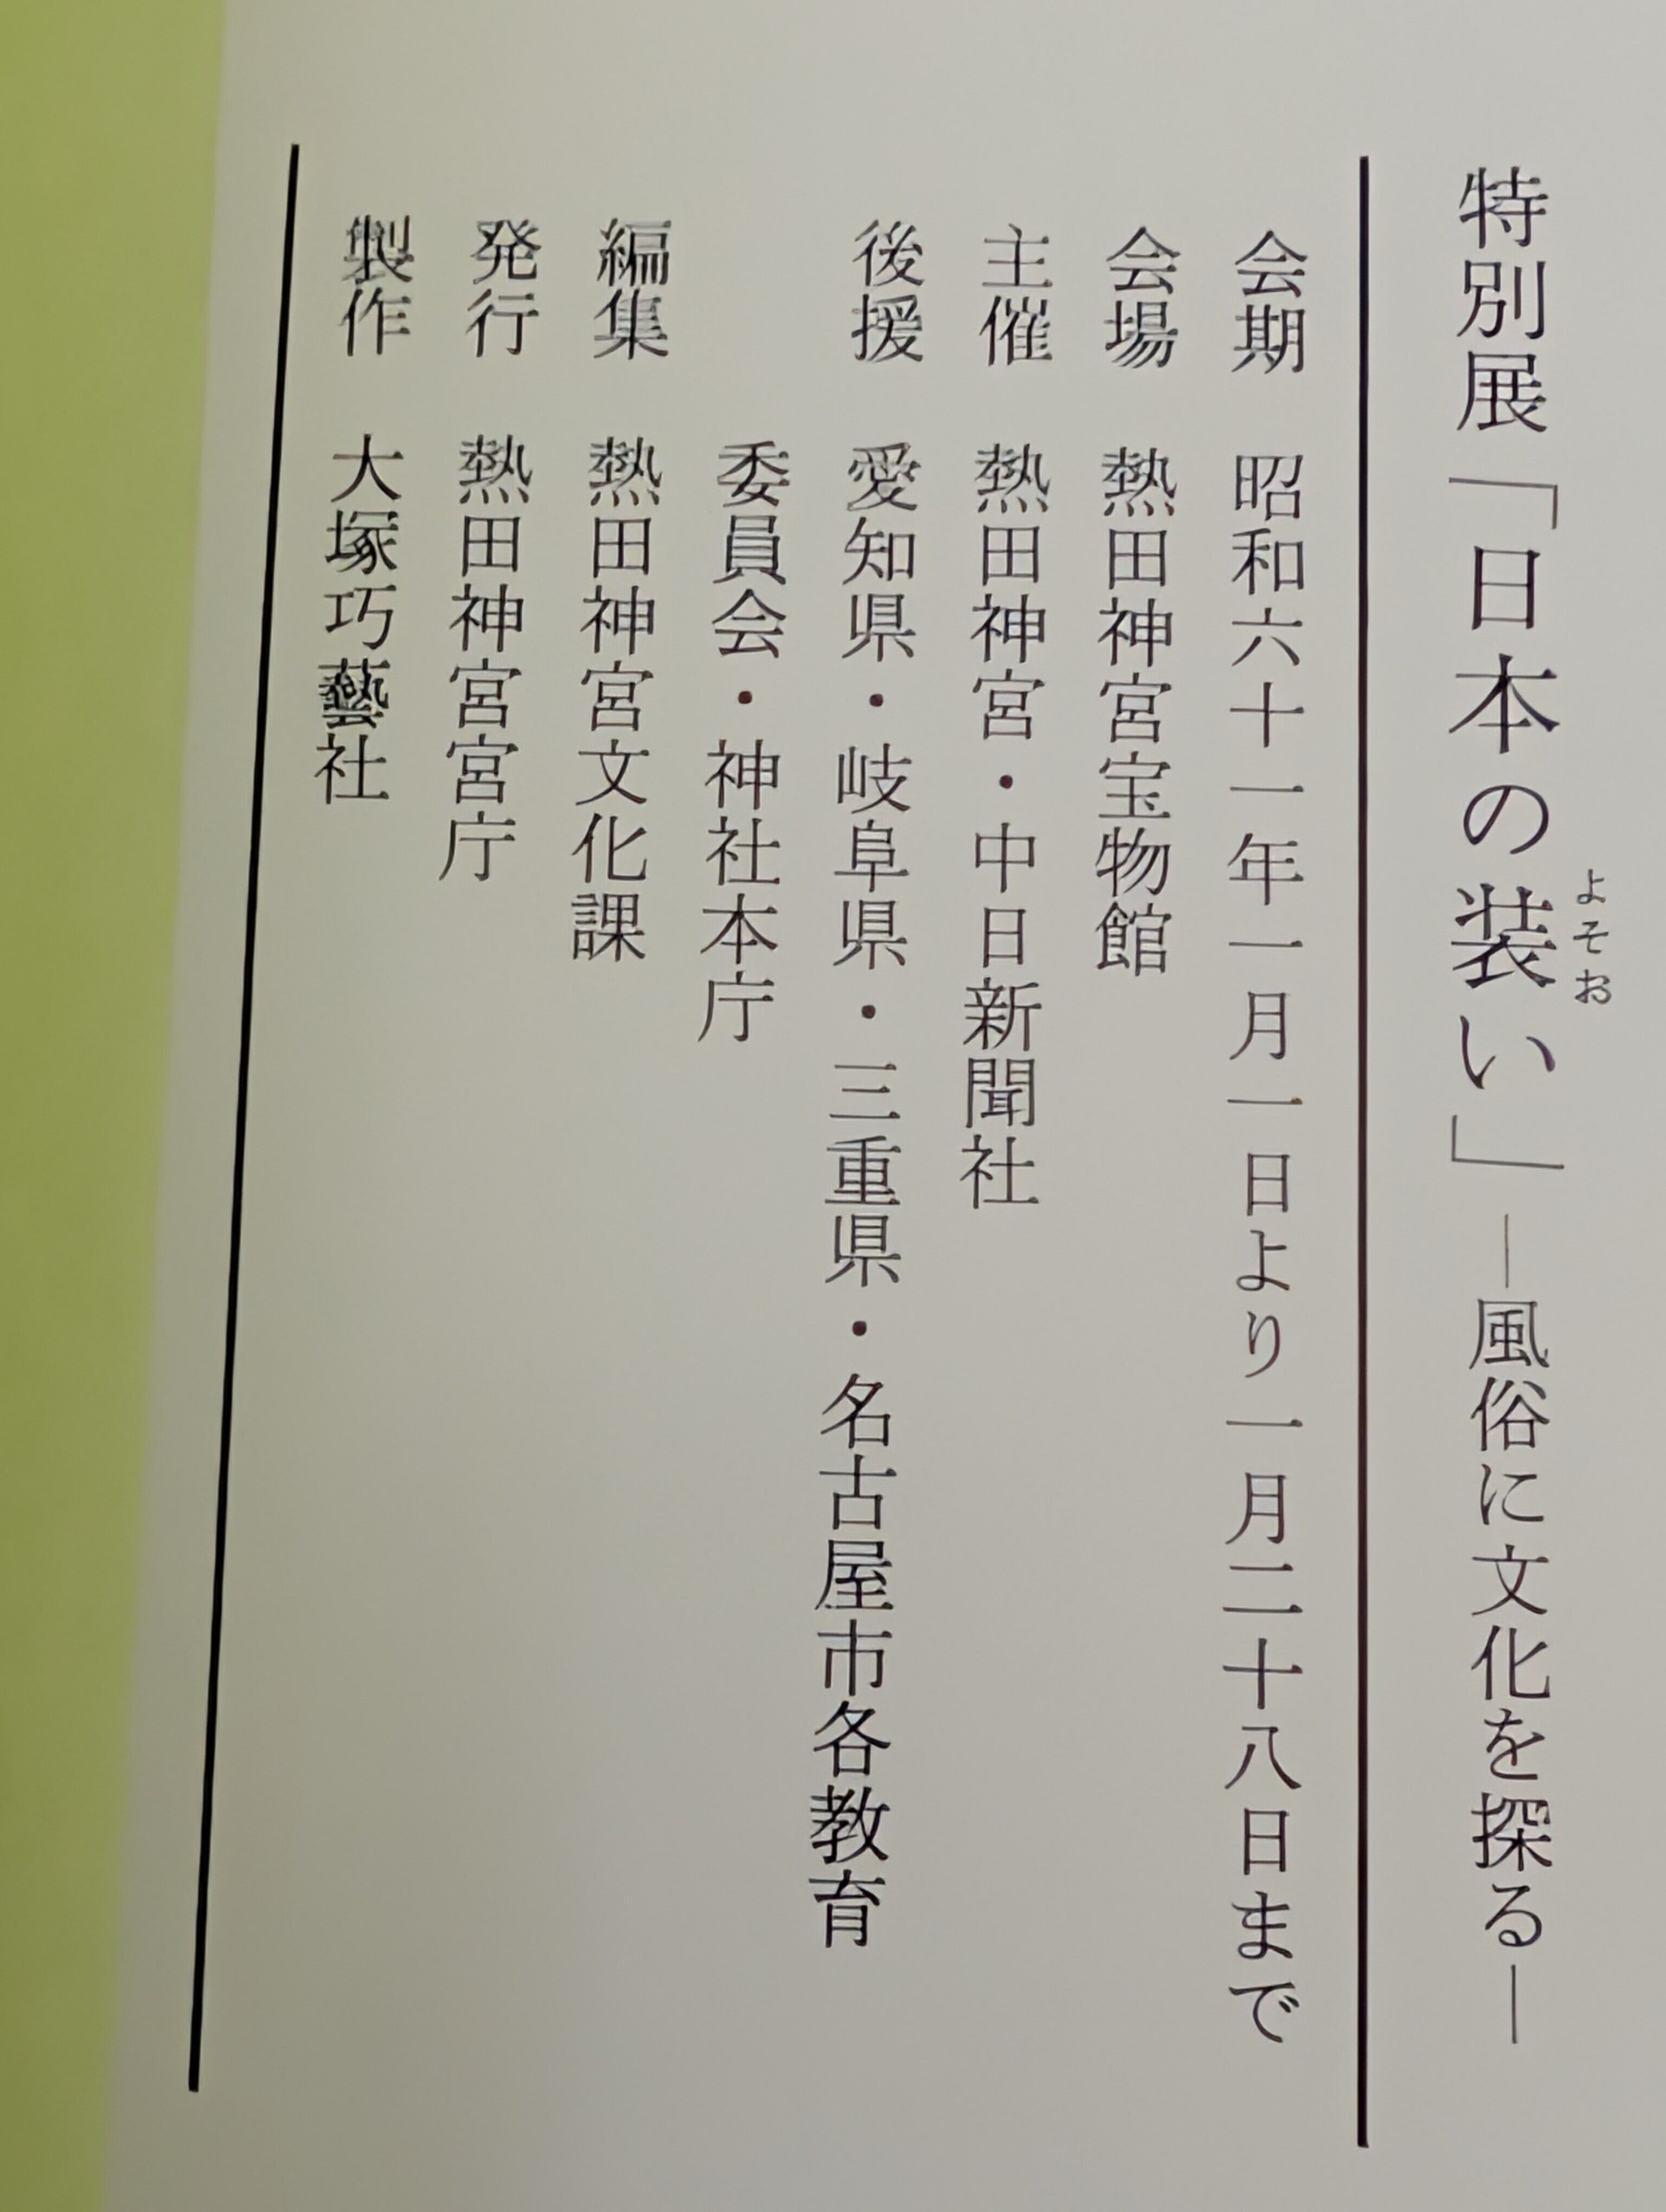 特別展「日本の装い」―風俗に文化を探る―
よそお
会期 昭和六十一年一月一日より一月二十八日まで
会場 熱田神宮宝物館
主催 熱田神宮・中日新聞社
後援 愛知県・岐阜県・三重県・名古屋市各教育
委員会・神社本庁
編集 熱田神宮文化課
発行 熱田神宮宮庁
製作 大塚巧藝社